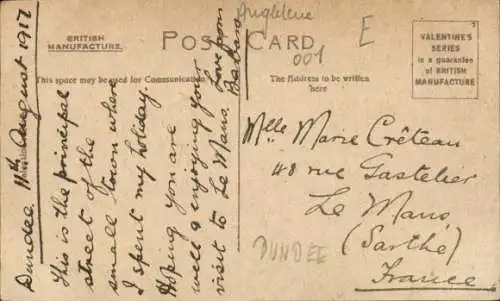 Angleterre
E
001
BRITISH
MANUFACTURE.
POST CARD
This space may be used for Communication
The Address to be written
here
VALENTINE'S
SERIES
is a guarantee
of BRITISH
MANUFACTURE
Dundee 11th August 1917
This is the principal
street of the
small town where
I spent my holiday.
Hoping you are
well & enjoying your
visit to Le Mans. Love from
Barbara
Mlle Marie Crêteau
48 rue Gastelier
Le Mans,
(Sarthe)
France
DUNDEE